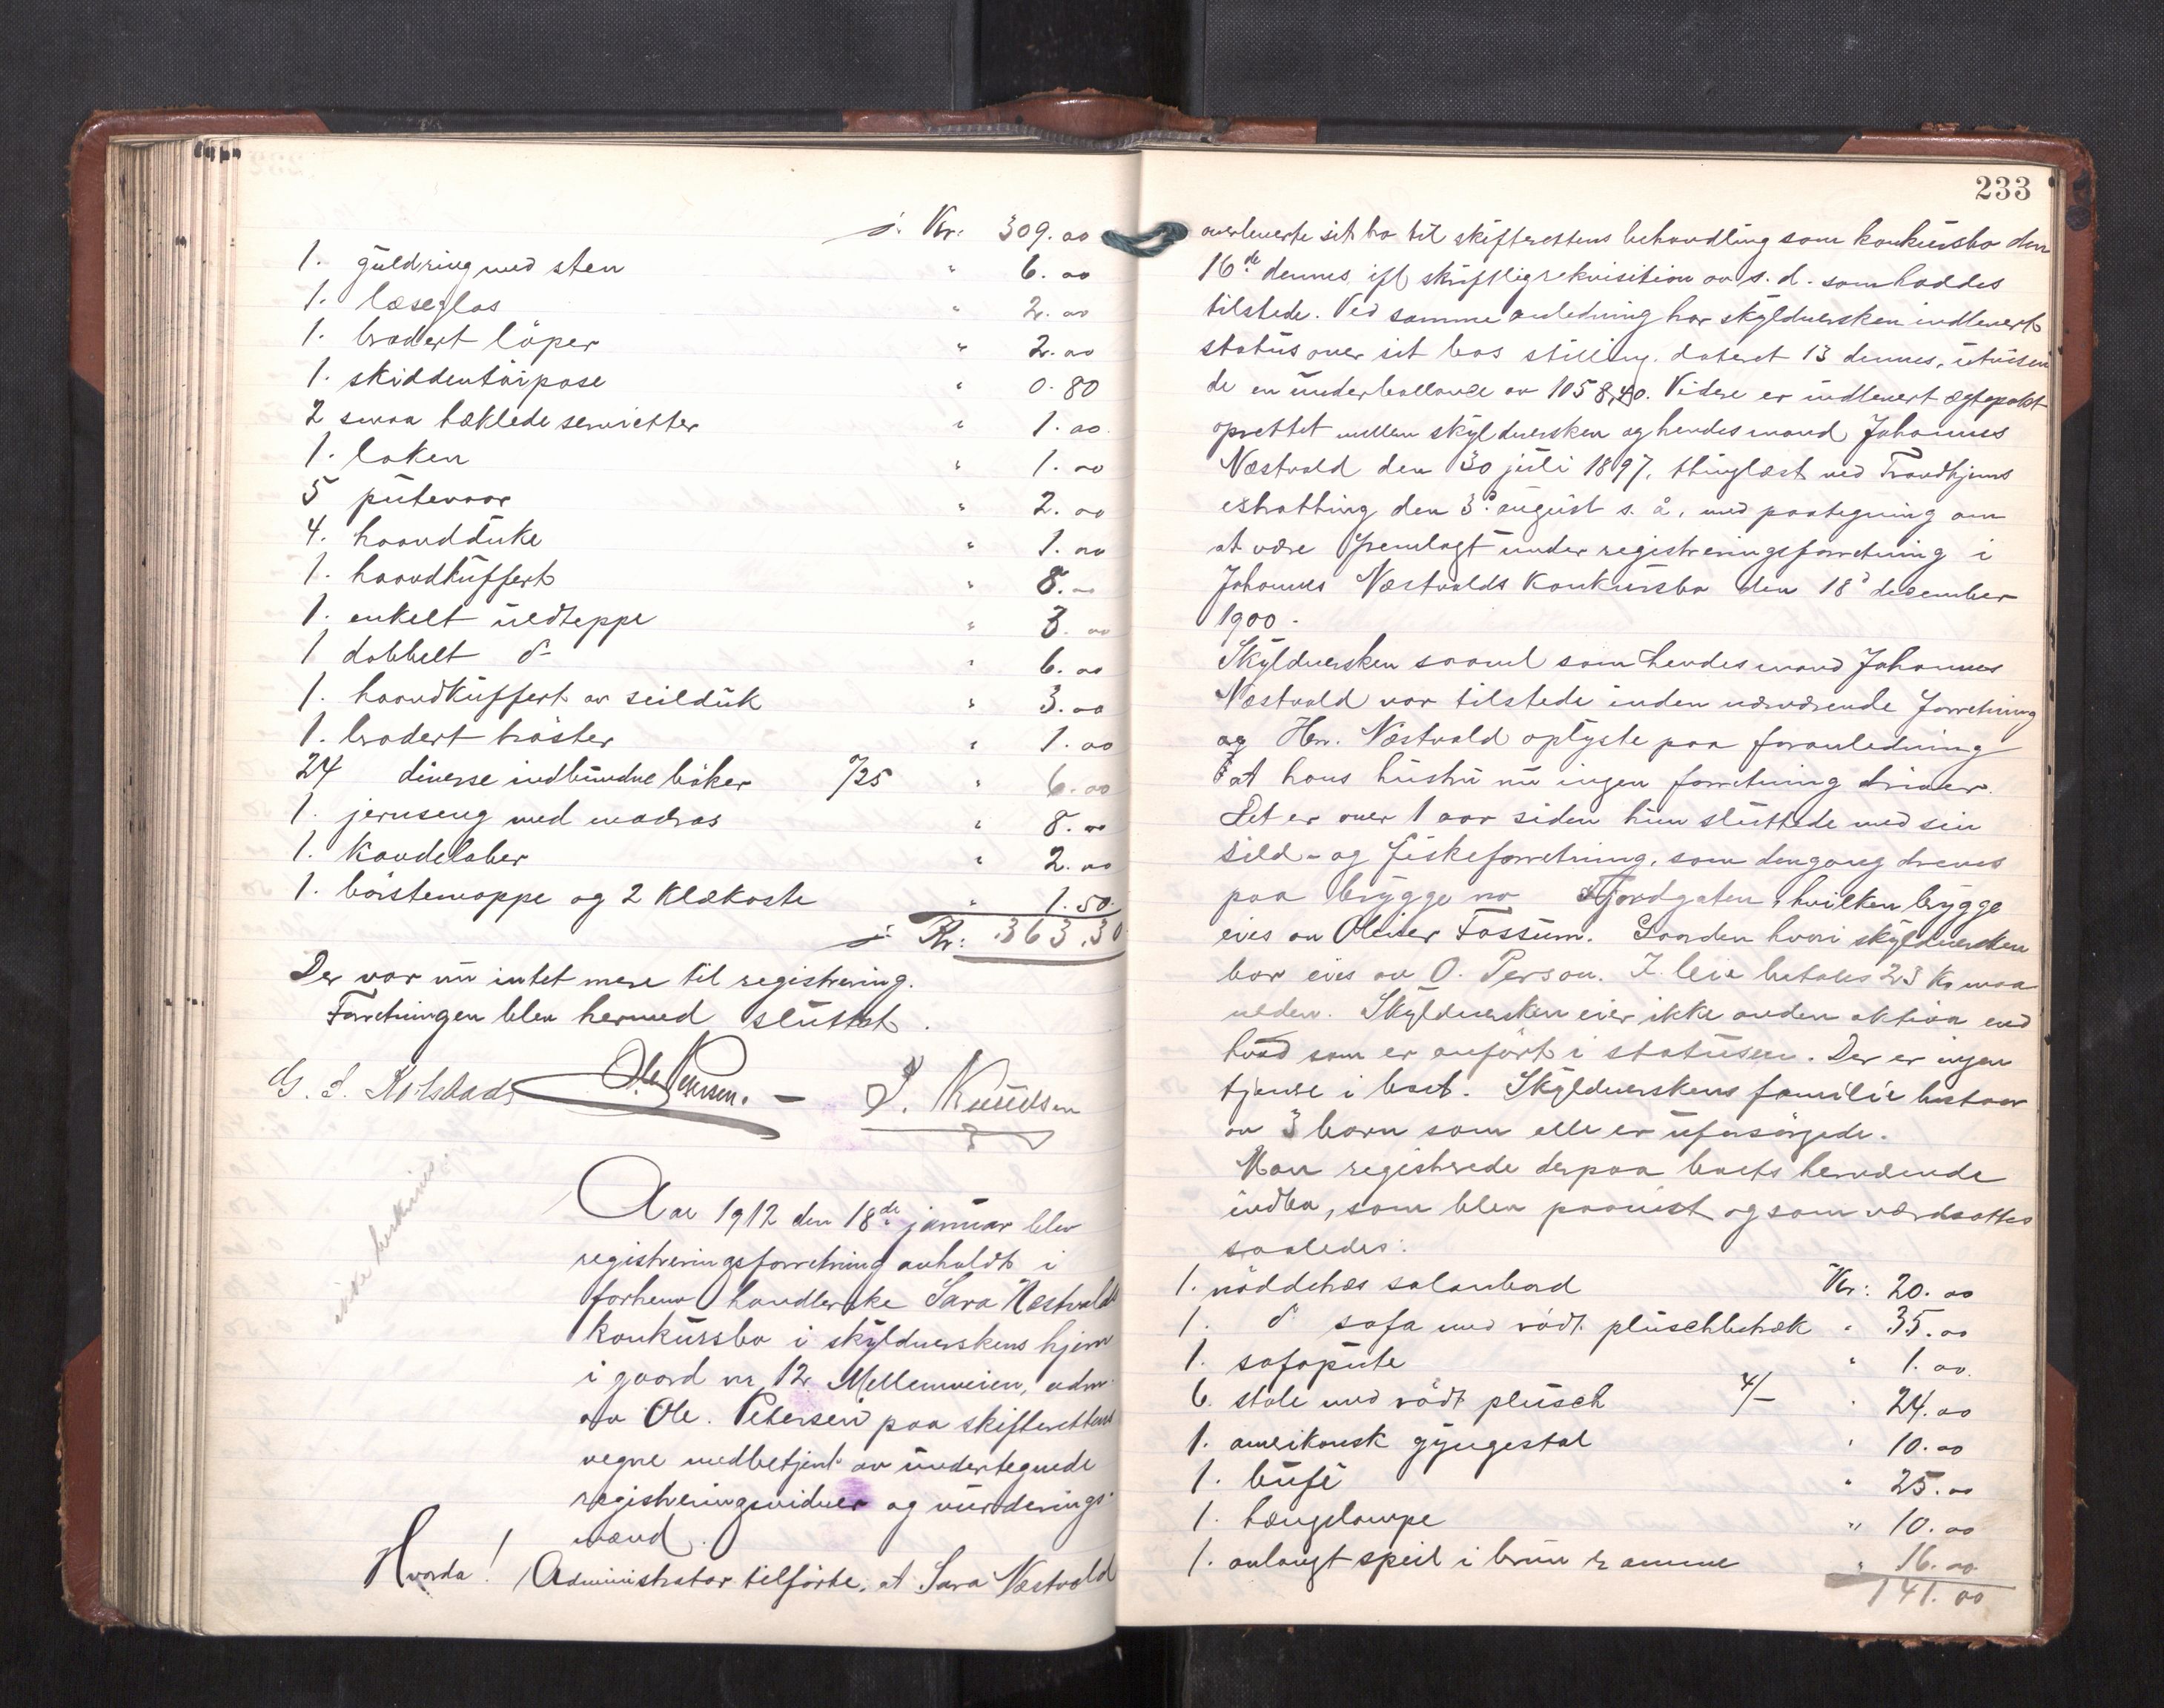 s. Kr. 309.00
1. guldring med sten " 6.00
1. læseglas " 2.00
1. brodert löper " 2.00
1. skiddentöipose " 0.80
2 smaa hæklede servietter " 1.00
1. laken " 1.00
5 putevaar " 2.00
4. haandduke " 1.00
1. haandkuffert " 8.00
1. enkelt uldteppe " 3.00
1 dobbelt do " 6.00
1. haandkuffert av seilduk " 3.00
1. brodert " 1.00
24 diverse indbundne böker à/25 " 6.00
1. jernseng med madras " 8.00
1. Kandelaber " 2.00
1. börstemappe og 2 Klækoste " 1.50
s. Kr: 363.30
Der var nu intet mere til registrering.
Forretningen blev hermed sluttet.
G. S. Kolstad Ole Petersen. – J. Knudsen
Aar 1912 den 18de januar blev
registreringsforretning avholdt i
forhenv handlerske Sara Næstvolds
konkursbo i skyldnerskens hjem
i gaard nr. 12 Mellemveien, adm.
av Ole. Petersen paa skifterettens
vegne medbetjent av undertegnede
registreringsvidner og vurderings-
mænd.
Hvorda! Administrator tilförte, at Sara Næstvold
233
overleverte sit bo til skifterettens behandling som konkursbo den
16de dennes ifl skriftlig rekvisition av s. d. som haddes
tilstede. Ved samme anledning har skyldnersken indlevert
status over sit bos stilling. dateret 13 dennes, utvisen
de en underballance av 1058,40. Videre er indlevert ægtepakt
oprettet mellem skyldnersken og hendes mand Johannes
Næstvold den 30 juli 1897, thinglæst ved Trondhjems
extratting den 3d august s. å, med paategning om
at være fremlagt under registreringsforretning i
Johannes Næstvolds Konkursbo den 18d desember
1900.
Skyldnersken saavel som hendes mand Johannes
Næstvold var tilstede under nærværende forretning
og Hr. Næstvold oplyste paa foranledning
at hans hustru nu ingen forretning driver.
Det er over 1 aar siden hun sluttede med sin
sild- og fiskeforretning, som dengang dreves
paa brygge no Fjordgaten, hvilken brygge
eies av Oliver Fossum. Gaarden hvori skyldnersken
bor eies av O. Person. I leie betales 23 Kr maa
neden. Skyldnersken eier ikke anden aktiva end
hvad som er anfört i statusen. Der er ingen
tjenere i boet. Skyldnerskens familie bestaar
av 3 barn som alle er uforsörgede.
Man registrerede derpaa boets henværende
indbo, som blev paavist og som værdsattes
saaledes:
1. nöddetræs salonbord Kr: 20.00
1. do sofa med rödt pluschbetræk " 35.00
1. sofapute " 1.00
6. stole med rödt plusch 4/– " 24.00
1. amerikansk gyngestol " 10.00
1. bufé " 25.00
1. hængelampe " 10.00
1. avlangt speil i brun ramme " 16.00
141.00